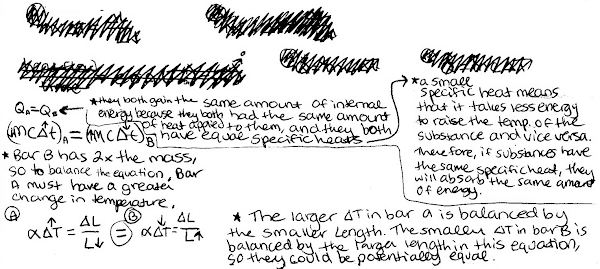 Q_A = Q_B
(mcΔt)_A = (mcΔt)_B
* they both gain the same amount of internal
energy because they both had the same amount
of heat applied to them, and they both
have equal specific heats
* a small
specific heat means
that it takes less energy
to raise the temp. of the
substance and vice versa.
Therefore, if substances have
the same specific heat, they
will absorb the same amount
of energy.
* Bar B has 2x the mass,
so to balance the equation, Bar
A must have a greater
change in temperature.
Ⓐ α ΔT↑ = ΔL / L↓ = Ⓑ α ΔT↓ = ΔL / L↑
* The larger ΔT in bar a is balanced by
the smaller Length. The smaller ΔT in bar B is
balanced by the larger length in this equation,
so they could be potentially equal.